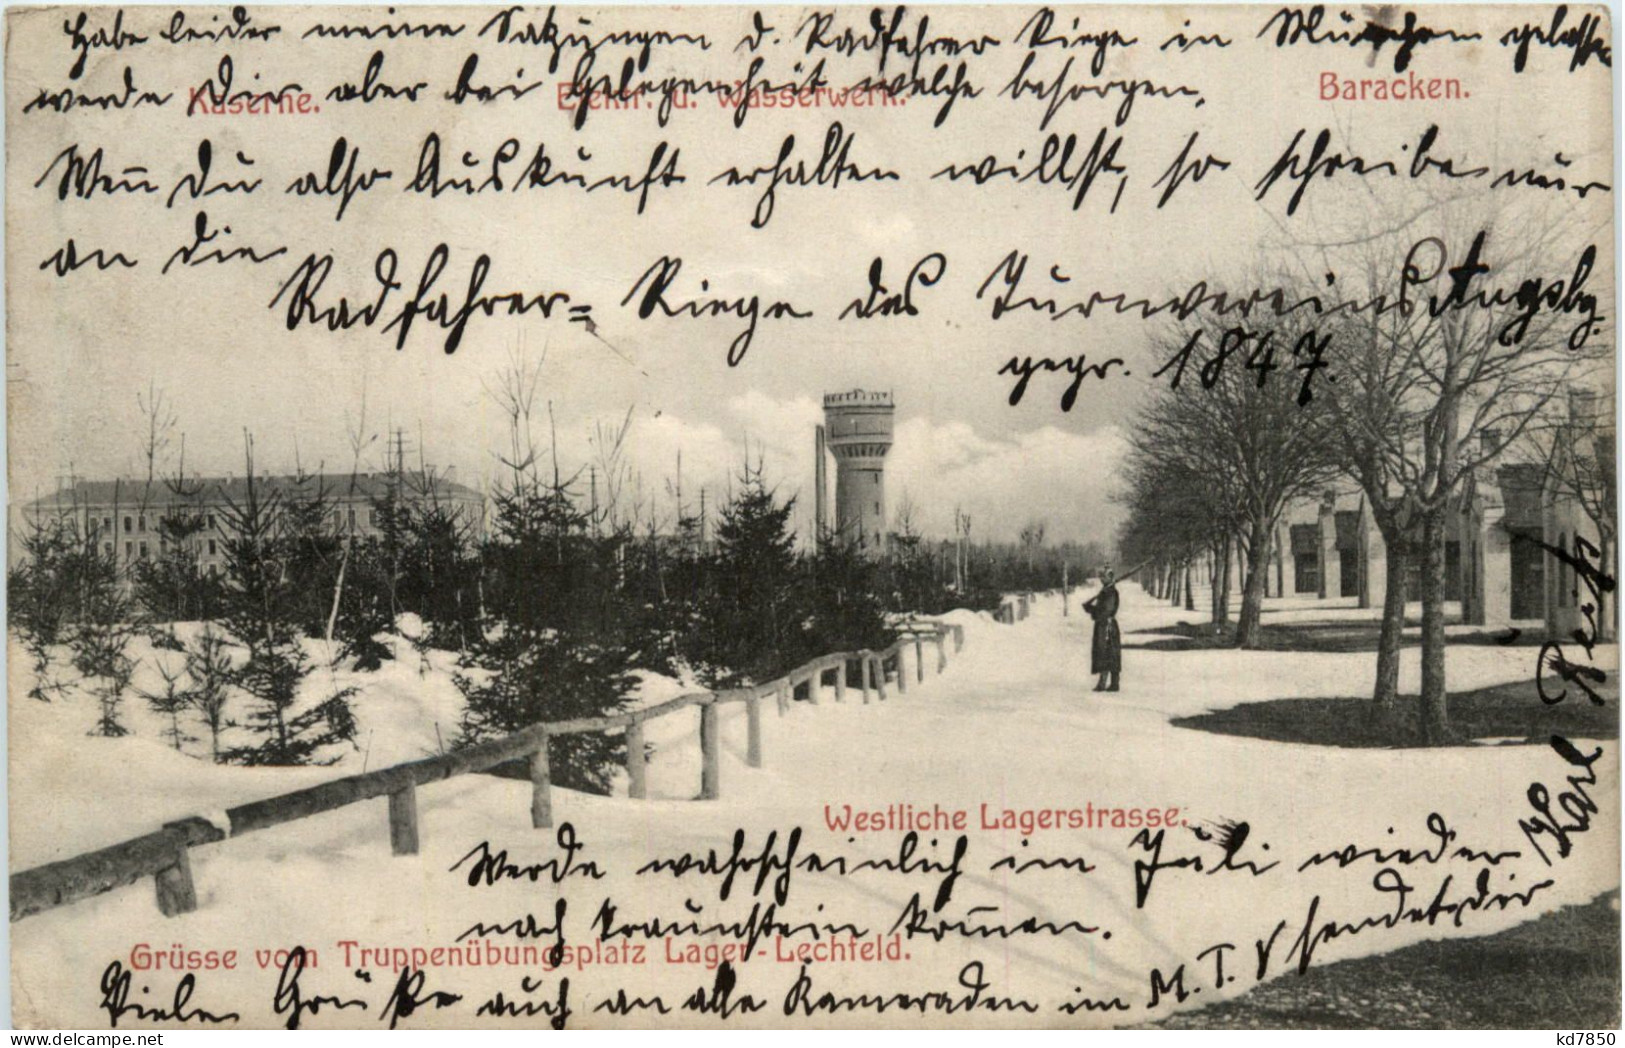 Habe leider meine Satzungen d. Radfahrer Riege in München gelassen
werde Dir aber bei Gelegenheit welche besorgen.
Kaserne. Elektr. u. Wasserwerk. Baracken.
Wenn Du also Auskunft erhalten willst, so schreibe nur
an die
Radfahrer= Riege des Turnvereins Augsbg.
gegr. 1847.
Westliche Lagerstrasse.
Werde wahrscheinlich im Juli wieder
nach Traunstein kommen.
Grüsse vom Truppenübungsplatz Lager-Lechfeld.
Viele Grüße auch an alle Kameraden im M.T.V sendet dir
Karl Reith
kd7850